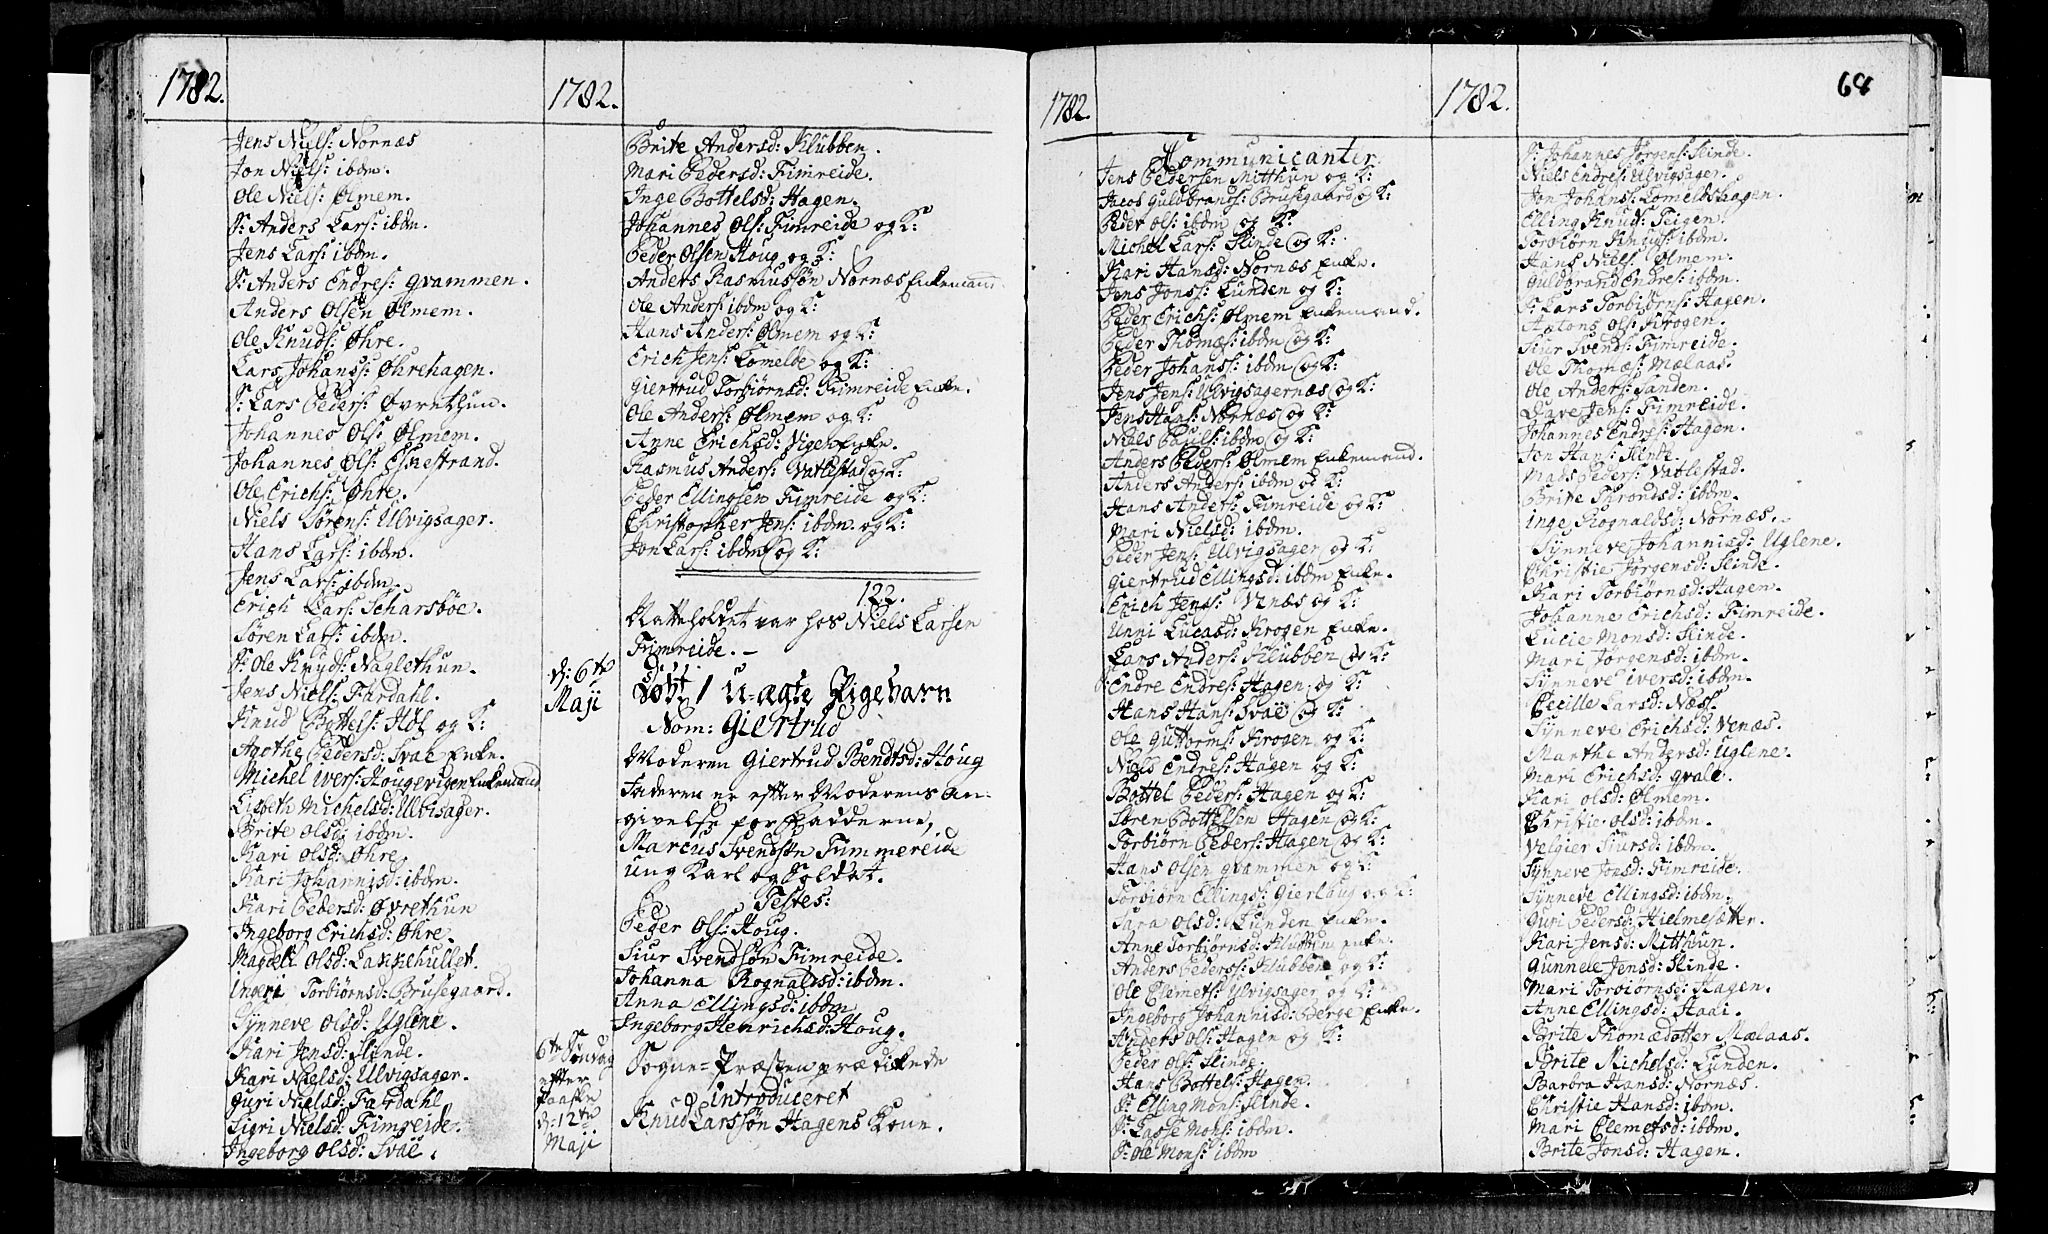 1782.
Jens Niels: Nornæs
Jon Niels: ibdm.
Ole Niels: Ølmem.
S: Anders Lars: ibdm.
Jens Lars: ibdm.
S: Anders Endres: Qvammen.
Anders Olsen Ølmem.
Ole Knuds: Øhre.
Lars Johans: Øhrehagen.
S: Lars Peders: Øvrethun.
Johannes Ols: Ølmem.
Johannes Ols: Eskestrand.
Ole Erichs: Øhre.
Niels Sørens: Ulvigsager.
Hans Lars: ibdm.
Jens Lars: ibdm.
Erich Lars: Scharsbøe.
Søren Lars: ibdm.
S: Ole Knuds: Naglethun.
Jens Niels: Fardahl.
Knud Bottels: Hol og K:
Agathe Pedersd: Svae Enke.
Michel Ivers: Hougevigen Enkemand
Lisbeth Michelsd: Ulvisager.
Brite Olsd: ibdm.
Kari Olsd: Øhre.
Kari Johannisd: ibdm.
Kari Pedersd: Øvrethun
Ingeborg Erichsd: Øhre.
Magdeli Olsd: Lakkehullet.
Ingeri Torbiørnsd: Brusegaard.
Synneve Olsd: Uglene.
Kari Jensd: Slinde.
Kari Nielsd: Ulvigsager.
Guri Nielsd: Fardahl
Sigri Nielsd: Fimreide.
Ingeborg Olsd: Svae.
1782.
Brite Andersd: Klubben.
Mari Pedersd: Fimreide.
Inge Bottelsd: Hagen.
Johannes Ols: Fimreide og K:
Peder Olsen Houg og K:
Anders Rasmussøn Nornæs Enkemand
Ole Anders: ibdm og K:
Hans Anders: Ølmem og K:
Erich Jens: Lomelde og K:
Giertrud Torbiørnsd: Fimreide Enke.
Ole Anders: Ølmem og K:
Anne Erichsd: Vigen Enke.
Rasmus Anders: Vatlestad og K:
Peder Ellingsen Fimreide og K:
Christopher Jens: ibdm. og K:
Jon Lars: ibdm og K:
122.
Natteholdet var hos Niels Larsen
Fimreide. –
d: 6te
Maji
Døbt 1 U-ægte Pigebarn
Nom: Giertrud
Moderen Giertrud Bendtsd: Houg
Faderen er efter Moderens an-
givelse for Fadderne,
Marcus Svendsøn Fimmereide
ung Karl og Soldat.
Testes:
Peder Ols: Houg.
Siur Svendsøn Fimreide.
Johanna Rognaldsd: ibdm.
Anna Ellingsd: ibdm
Ingeborg Henrichsd: Houg.
6te Søndag
efter
Paaske
d: 12te
Maji
Sogne-Præsten prædikede
Introduceret
Knud Larssøn Hagens Kone.
1782.
Communicanter.
Jens Pedersen Mitthun og K:
Jacob Guldbrands: Brusegaard og K:
Peder Ols: ibdm og K:
Michel Lars: Slinde og K:
Kari Hansd: Nornæs Enke.
Jens Jons: Lunden og K:
Peder Erichs: Ølmem Enkemand.
Peder Thomæs: ibdm og K:
Peder Johans: ibdm og K:
Jens Jens: Ulvigsagernæs og K:
Jens Hans: Nornæs og K:
Niels Pauls: ibdm og K:
Anders Peders: Ølmem Enkemand.
Anders Anders: ibdm og K:
Hans Anders: Fimreide og K:
Mari Nielsd: ibdm.
Peder Jens: Ulvigsager og K:
Giertrud Ellingsd: ibdm Enke.
Erich Jens: Venæs og K:
Unni Lucasd: Krogen Enke.
Lars Anders: Klubben og K:
Endre Endres: Hagen og K:
Hans Hans: Svae og K:
Ole Guttorms: Krogen og K:
Niels Endres: Hagen og K:
Bottel Peders: Hagen og K:
Søren Bottelsen Hagen og K:
Torbiørn Peders: Hagen og K:
Hans Olsen Qvammen og K:
Torbiørn Ellings: Gierlaug og K:
Sara Olsd: Lunden Enke.
Anne Torbiørnsd: Klubben Enke.
Anders Peders: Klubben og K:
Ole Clemets: Ulvigsager og K:
Ingeborg Johannisd: Berge Enke.
Anders Ols: Hagen og K:
Peder Ols: Slinde.
Hans Bottels: Hagen.
S: Elling Mons: Slinde.
S: Lasse Mons: ibdm.
S: Ole Mons: ibdm
1782.
68
S: Johannes Jørgens: Slinde.
Niels Endres: Ulvigsager.
Jon Johans: Lomeldshagen.
Elling Knuds: Teigen.
Torbiørn Knuds: ibdm.
Hans Niels: Ølmem.
Guldbrand Endres: ibdm.
S: Lars Torbiørns: Hagen.
Antons Ols: Krogen.
Siur Svends: Fimreide.
Ole Thomæs: Mælaas.
Ole Anders: Sanden.
Dave Jens: Fimreide.
Johannes Endres: Hagen.
Jon Hans: Slinde.
Mads Peders: Vatlestad.
Brite Throndsd: ibdm.
Inge Rognaldsd: Nornæs.
Synneve Johannisd: Uglene.
Christie Jørgensd: Slinde.
Kari Torbiørnsd: Hagen.
Johanne Erichsd: Fimreide.
Lucie Monsd: Slinde.
Mari Jørgensd: ibdm.
Synneve Iversd: ibdm.
Cecille Larsd: Næss.
Synneve Erichsd: Venæs.
Marthe Andersd: Uglene.
Mari Erichsd: Qvale.
Kari Olsd: Ølmem.
Christie Olsd: ibdm.
Velgier Siursd: ibdm.
Synneve Jonsd: Fimreide.
Synneve Ellingsd: ibdm.
Guri Pedersd: Hielmesætter.
Kari Jensd: Mitthun.
Gunnele Jensd: Slinde.
Mari Torbiørnsd: Hagen.
Anne Ellingsd: Haai.
Brite Thomædotter Mælaas.
Brite Michelsd: Lunden.
Barbra Hansd: Nornæs.
Christie Hansd: ibdm.
Mari Clemetsd: ibdm.
Brite Jonsd: Hagen.